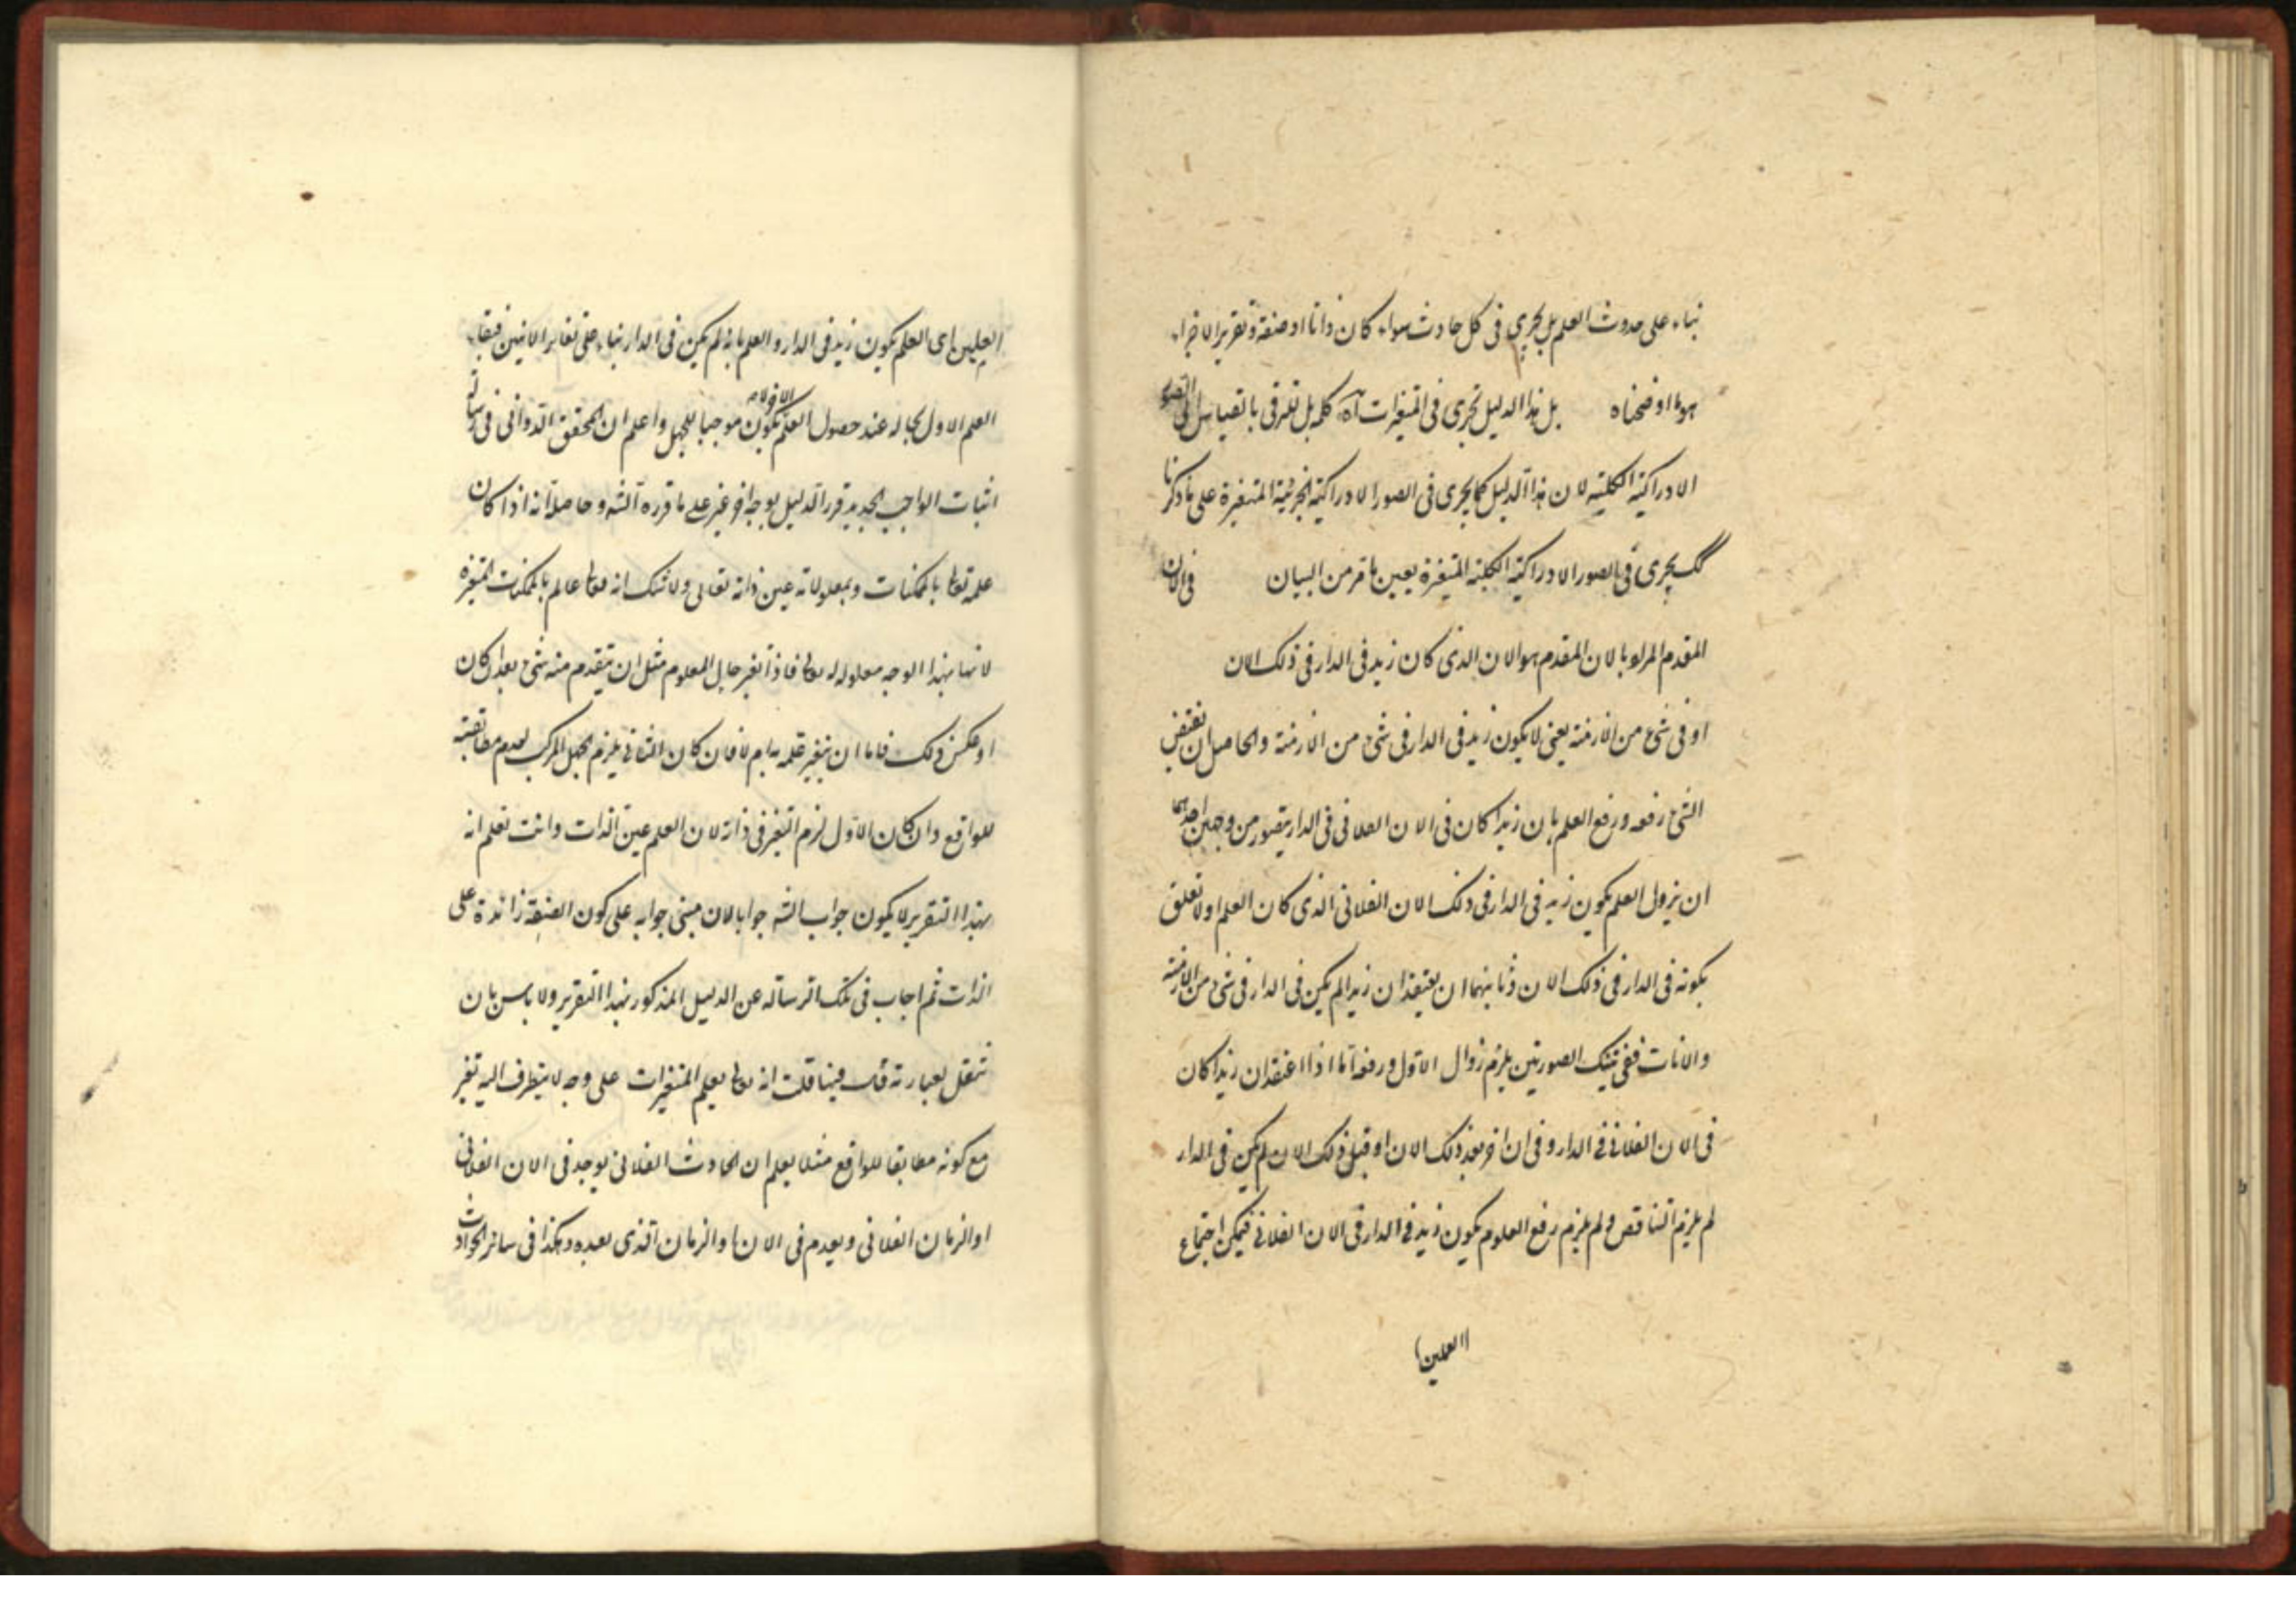 بناء على حدوث العلم بل يجرى فى كل حادث سواء كان ذاتا او صفة وتقرير الاجزاء
هو ما اوضحناه بل هذا الدليل يجرى فى المتغيرات آه كلمة بل للترقى بالقياس الى الصور
الادراكية الكلية لان هذا الدليل كما يجرى فى الصور الادراكية الجزئية المتغيرة على ما ذكرنا
كك يجرى فى الصور الادراكية الكلية المتغيرة بعين ما مر من البيان فى الان
المقدم المراد بالان المقدم هو الان الذى كان زيد فى الدار فى ذلك الان
او فى شئ من الازمنة يعنى لا يكون زيد فى الدار فى شئ من الازمنة والحاصل ان نقيض
الشئ رفعه ورفع العلم بان زيدا كان فى الان الفلانى فى الدار يتصور من وجهين احدهما
ان يزول العلم بكون زيد فى الدار فى ذلك الان الفلانى الذى كان العلم اولا تعلق
بكونه فى الدار فى ذلك الان وثانيهما ان يعتقد ان زيدا لم يكن فى الدار فى شئ من الازمنة
والانات ففى تينك الصورتين يلزم زوال الاول ورفعه اما اذا اعتقد ان زيدا كان
فى الان الفلانى فى الدار وفى ان اخر بعد ذلك الان او قبل ذلك الان لم يكن فى الدار
لم يلزم التناقض ولم يلزم رفع العلوم بكون زيد فى الدار فى الان الفلانى فيمكن اجتماع
العلمين
العلمين اى العلم بكون زيد فى الدار والعلم بانه لم يكن فى الدار بناء على تغاير الانين فبقاء
العلم الاول بحاله عند حصول العلم الاخر لا يكون موجبا للجهل واعلم ان المحقق الدوانى فى رسالة
اثبات الواجب الجديد قرر الدليل بوجه اخر غير على ما قرره الشه وحاصله انه اذا كان
علمه تعالى بالممكنات وبمعلولاته عين ذاته تعالى ولا شك انه تعالى عالم بالممكنات المتغيرة
لانها بهذا الوجه معلولة له تعالى فاذا تغير حال المعلوم مثل ان ينقدم منه شئ بعد ان كان
او عكس ذلك فاما ان يتغير علمه به ام لا فان كان الثانى يلزم الجهل المركب لعدم مطابقته
للواقع وان كان الاول لزم التغير فى ذاته لان العلم عين الذات وانت تعلم انه
بهذا التقرير لا يكون جواب الشه جوابا لان مبنى جوابه على كون الصفة زائدة على
الذات ثم اجاب فى تلك الرسالة عن الدليل المذكور بهذا التقرير ولا باس بان
ننقل بعبارته قال فيها قلت انه تعالى يعلم المتغيرات على وجه لا يتطرف اليه تغير
مع كونه مطابقا للواقع مثلا يعلم ان الحادث الفلانى يوجد فى الان الفلانى
او الزمان الفلانى ويعدم فى الان او الزمان الذى بعده وهكذا فى سائر الحوادث